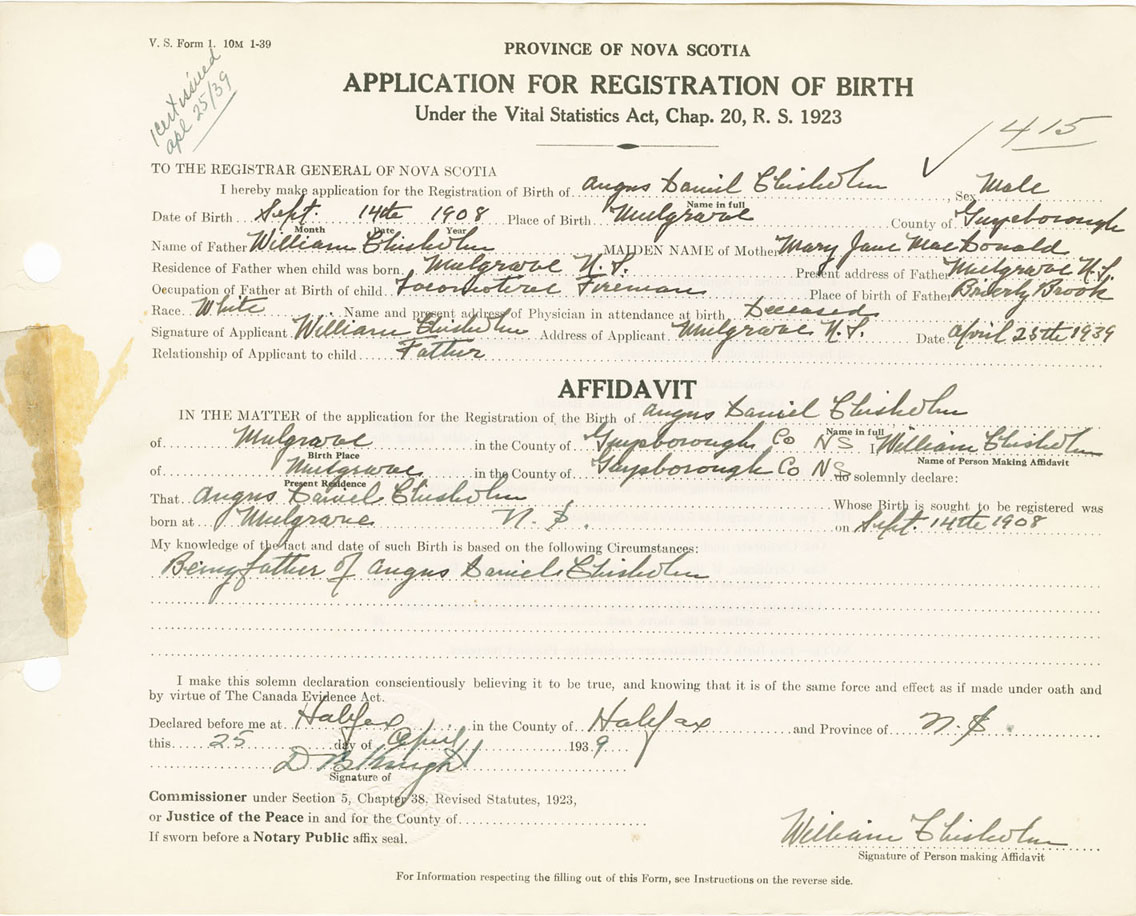 V. S. Form 1. 10M 1-39
Cert issued
apl 25/39
PROVINCE OF NOVA SCOTIA
APPLICATION FOR REGISTRATION OF BIRTH
Under the Vital Statistics Act, Chap. 20, R. S. 1923
✓ 415
TO THE REGISTRAR GENERAL OF NOVA SCOTIA
I hereby make application for the Registration of Birth of Angus Daniel Chisholm, Sex Male
Name in full
Date of Birth Sept. 14th 1908 Place of Birth Mulgrave County of Guysborough
Month Date Year
Name of Father William Chisholm MAIDEN NAME of Mother Mary Jane MacDonald
Residence of Father when child was born Mulgrave N.S. Present address of Father Mulgrave N.S.
Occupation of Father at Birth of child Locomotive Fireman Place of birth of Father Brierly Brook
Race White Name and present address of Physician in attendance at birth Deceased
Signature of Applicant William Chisholm Address of Applicant Mulgrave N.S. Date April 25th 1939
Relationship of Applicant to child Father
AFFIDAVIT
IN THE MATTER of the application for the Registration of the Birth of Angus Daniel Chisholm
Name in full
of Mulgrave in the County of Guysborough Co NS I William Chisholm
Birth Place Name of Person Making Affidavit
of Mulgrave in the County of Guysborough Co NS do solemnly declare:
Present Residence
That Angus Daniel Chisholm Whose Birth is sought to be registered was
born at Mulgrave N.S. on Sept. 14th 1908
My knowledge of the fact and date of such Birth is based on the following Circumstances:
Being father of Angus Daniel Chisholm
I make this solemn declaration conscientiously believing it to be true, and knowing that it is of the same force and effect as if made under oath and
by virtue of The Canada Evidence Act.
Declared before me at Halifax in the County of Halifax and Province of N.S.
this 25 day of April 1939
D B Knight
Signature of
Commissioner under Section 5, Chapter 38, Revised Statutes, 1923,
or Justice of the Peace in and for the County of
If sworn before a Notary Public affix seal.
William Chisholm
Signature of Person making Affidavit
For Information respecting the filling out of this Form, see Instructions on the reverse side.